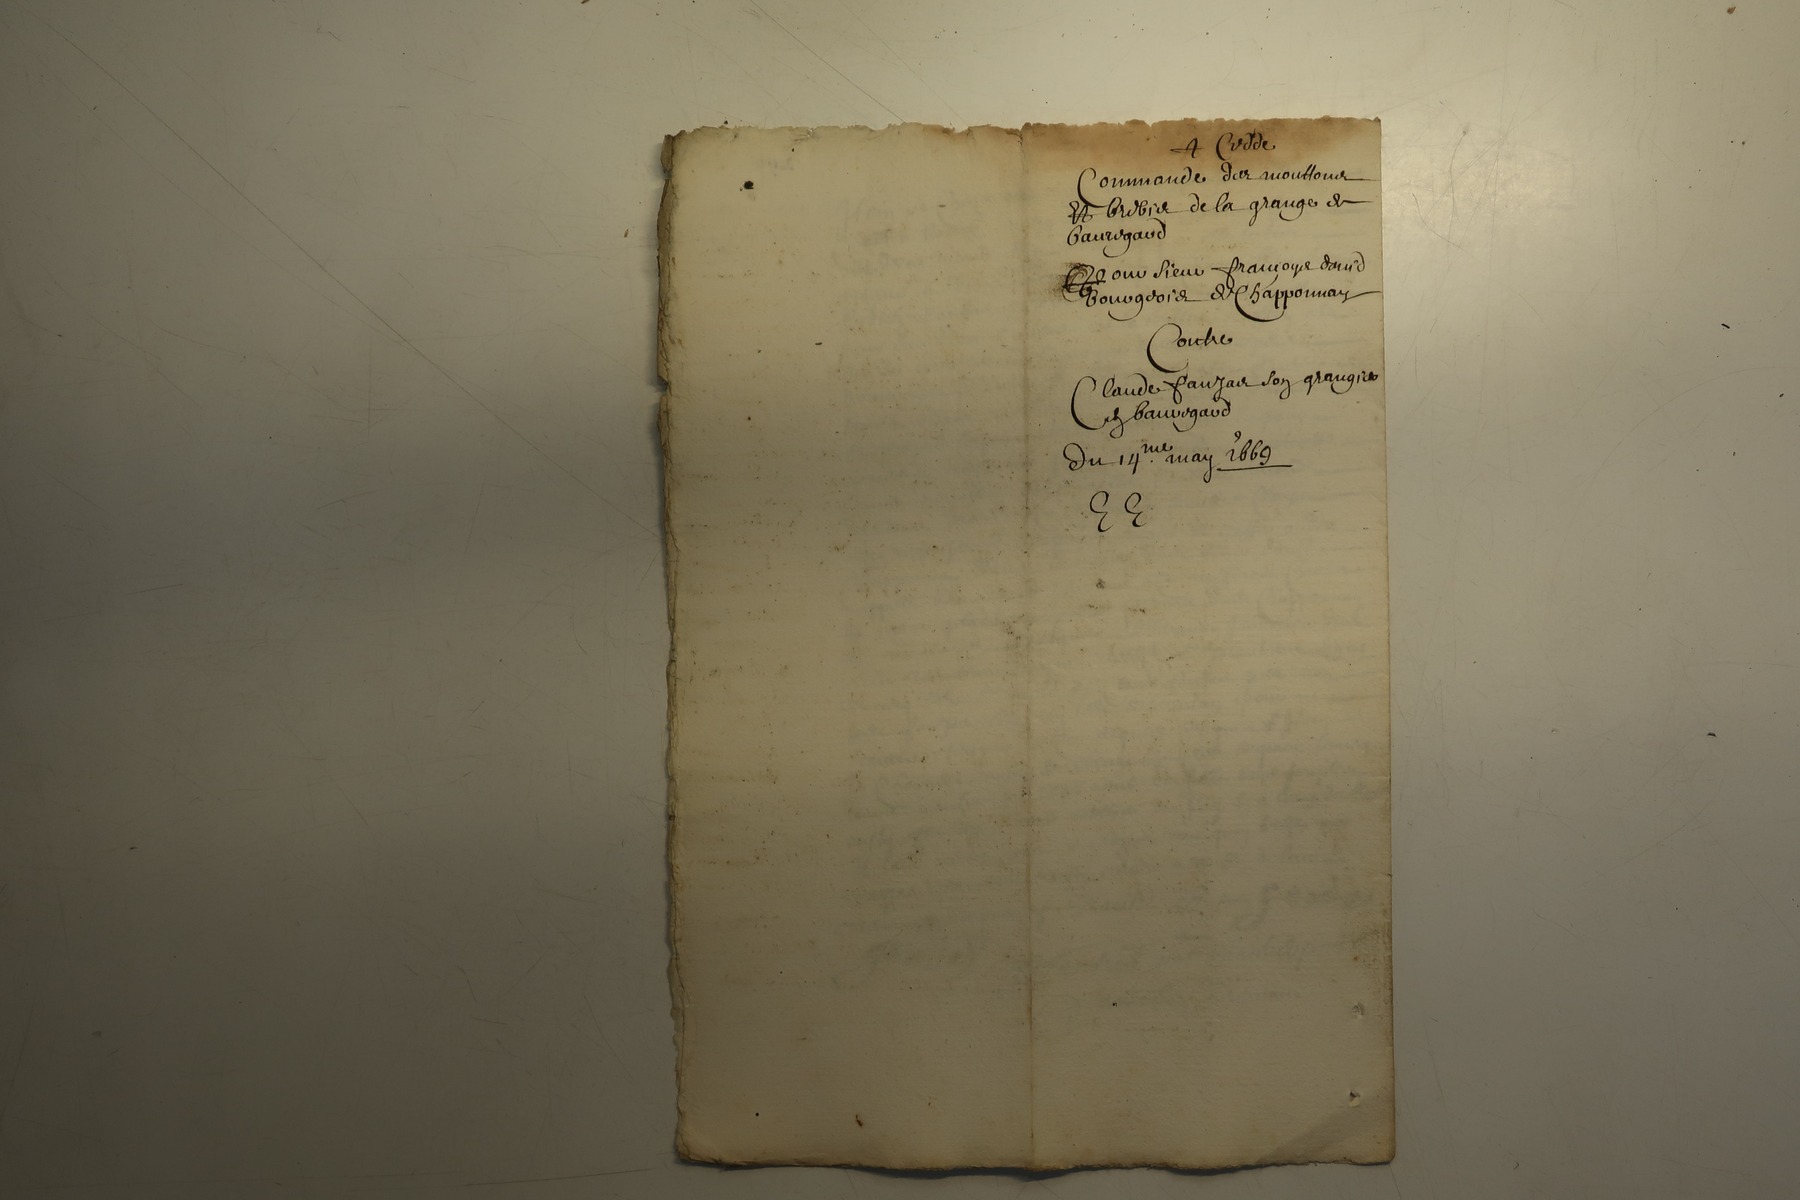 4 Cedde
Commande des mouttons
Et brebis de la grange de
bauregard
Pour sieur françoys david
Bourgeois de Chapponnay
Contre
Claude fauzas son grangier
de bauregard
Du 14me may 1669